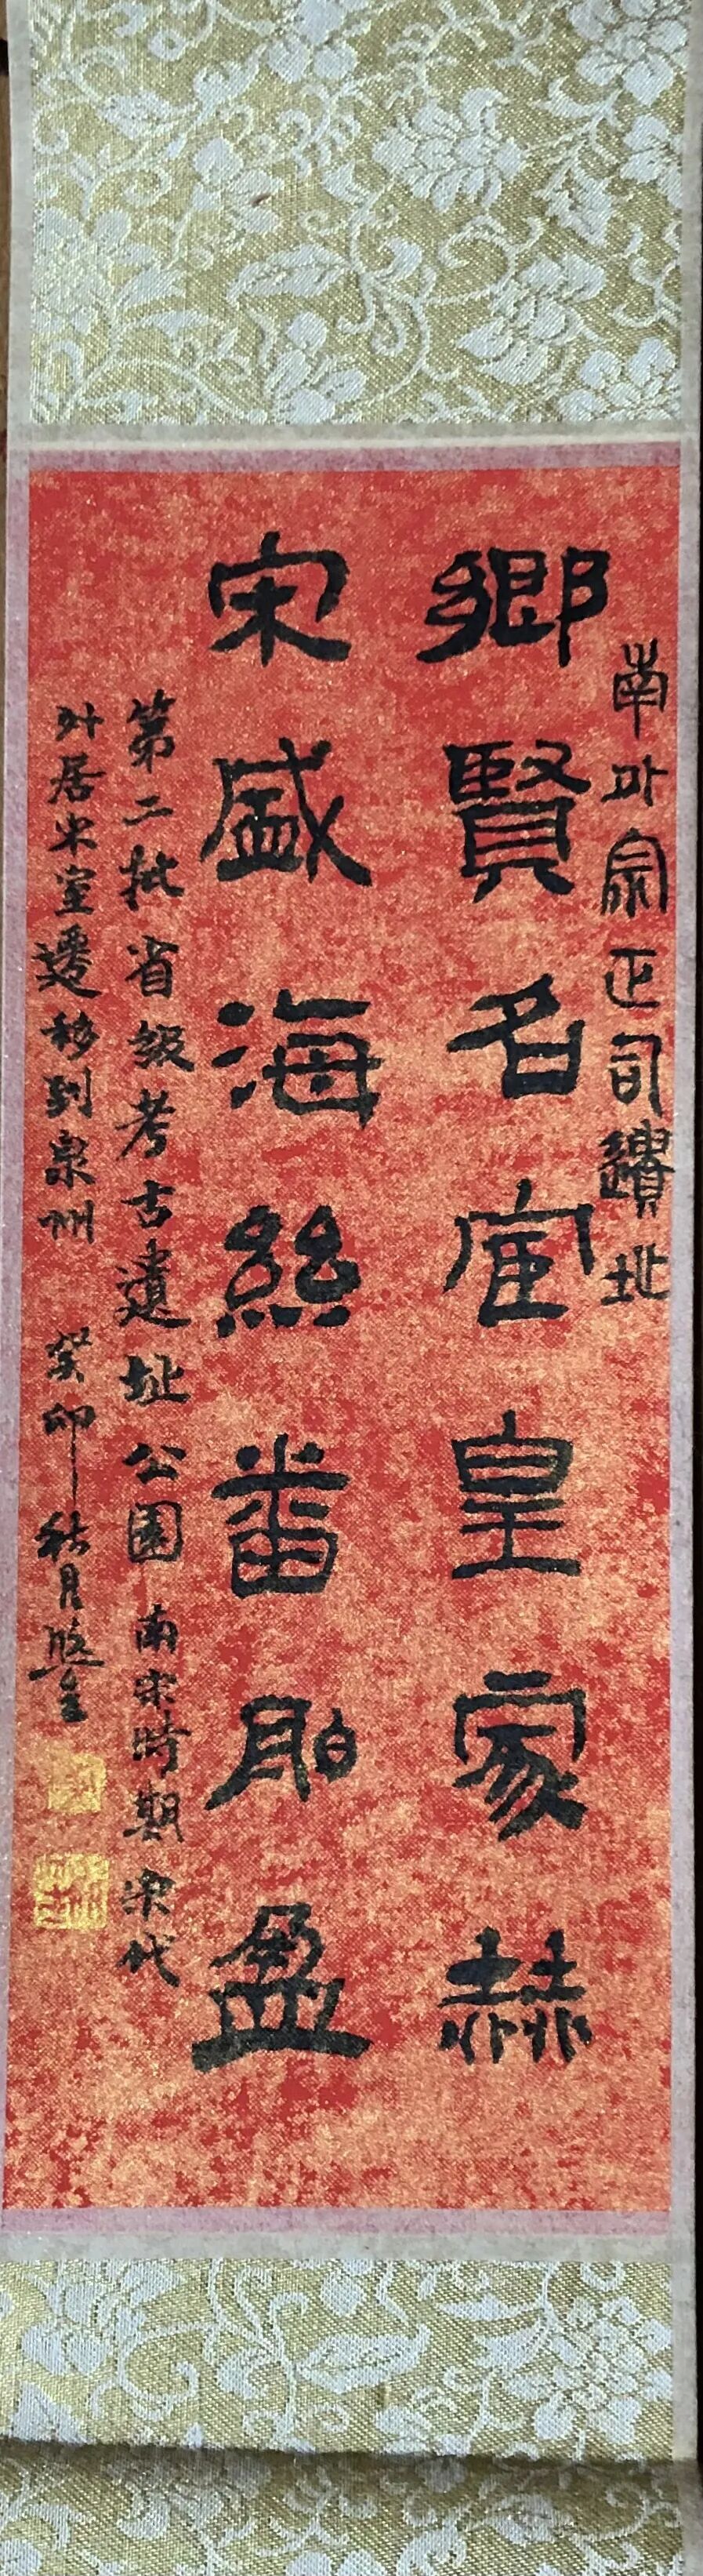 南外宗正司遺址
鄉賢名宦皇家赫
宋盛海絲番舶盈
第二批省級考古遺址公園 南宋時期宋代
外居宗室遷移到泉州 癸卯秋月